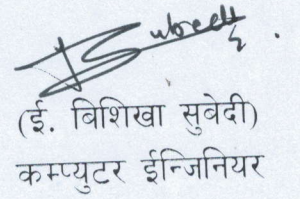 (ई. बिशिखा सुवेदी)
कम्प्युटर ईन्जिनियर